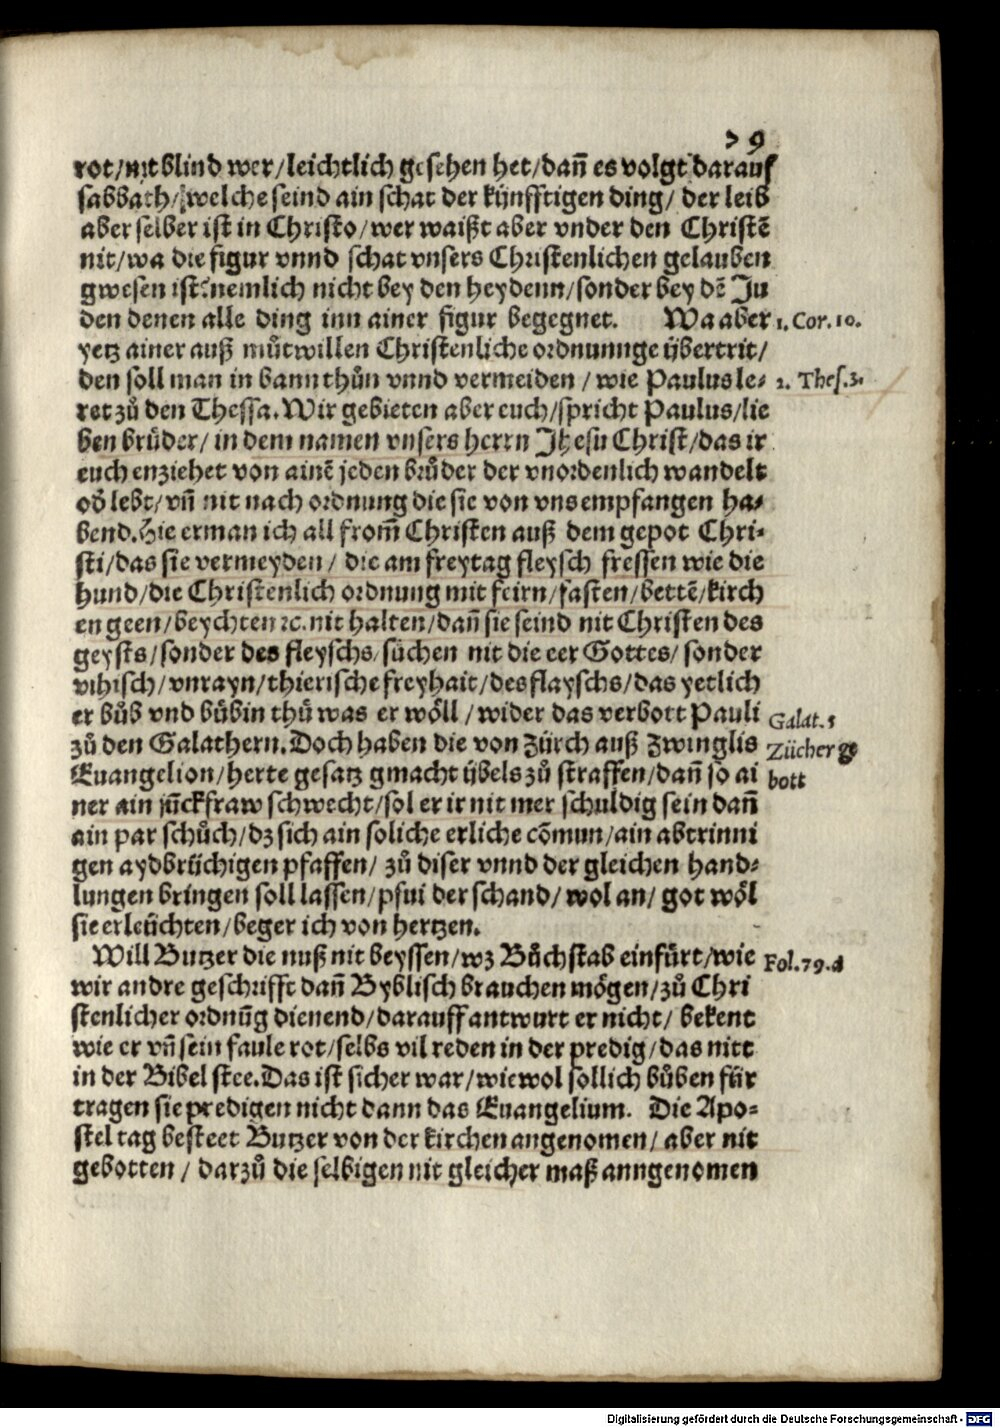 79
rot/nit blind wer/leichtlich gesehen het/dañ es volgt darauf
sabbath/welche seind ain schat der kynfftigen ding/ der leib
aber selber ist in Christo/wer waißt aber vnder den Christẽ
nit/wa die figur vnnd schat vnsers Christenlichen gelauben
gwesen ist: nemlich nicht bey den heydenn/sonder bey dẽ Ju
den denen alle ding inn ainer figur begegnet. Wa aber 1. Cor. 10.
yetz ainer auß můtwillen Christenliche ordnunnge ybertrit/
den soll man in bann thůn vnnd vermeiden / wie Paulus le- 2. Thes. 3.
ret zů den Thessa. Wir gebieten aber euch/spricht Paulus/lie
ben brůder/ in dem namen vnsers herrn Jhesu Christ/das ir
euch enziehet von ainẽ jeden brůder der vnordenlich wandelt
oď lebt/vñ nit nach ordnung die sie von vns empfangen ha-
bend. Hie erman ich all from̃ Christen auß dem gepot Chri-
sti/das sie vermeyden / die am freytag fleysch fressen wie die
hund/die Christenlich ordnung mit feirn/fasten/bettẽ/kirch
en geen/beychten ꝛc. nit halten/dañ sie seind nit Christen des
geysts/sonder des fleyschs/sůchen nit die eer Gottes/ sonder
vihisch/vnrayn/thierische freyhait/des flayschs/das yetlich
er bůb vnd bübin thů was er wöll / wider das verbott Pauli Galat. 5
zů den Galathern. Doch haben die von Zürch auß Zwinglis Zücher ge
Euangelion/herte gesatz gmacht ybels zů straffen/dañ so ai bott
ner ain jũckfraw schwecht/sol er ir nit mer schuldig sein dañ
ain par schůch/dz sich ain soliche erliche cõmun/ain abtrinni
gen aydbrüchigen pfaffen/ zů diser vnnd der gleichen hand-
lungen bringen soll lassen/pfui der schand/ wol an/ got wöl
sie erleüchten/beger ich von hertzen.
Will Butzer die nuß nit beyssen/wz Bůchstab einfürt/wie Fol. 79. d
wir andre geschrifft dañ Byblisch brauchen mögen/zů Chri
stenlicher ordnũg dienend/darauff antwurt er nicht/ bekent
wie er vñ sein faule rot/selbs vil reden in der predig/das nitt
in der Bibel stee. Das ist sicher war/wiewol sollich bůben für
tragen sie predigen nicht dann das Euangelium. Die Apo-
stel tag besteet Butzer von der kirchen angenomen/ aber nit
gebotten / darzů die selbigen nit gleicher maß anngenomen
Digitalisierung gefördert durch die Deutsche Forschungsgemeinschaft - DFG